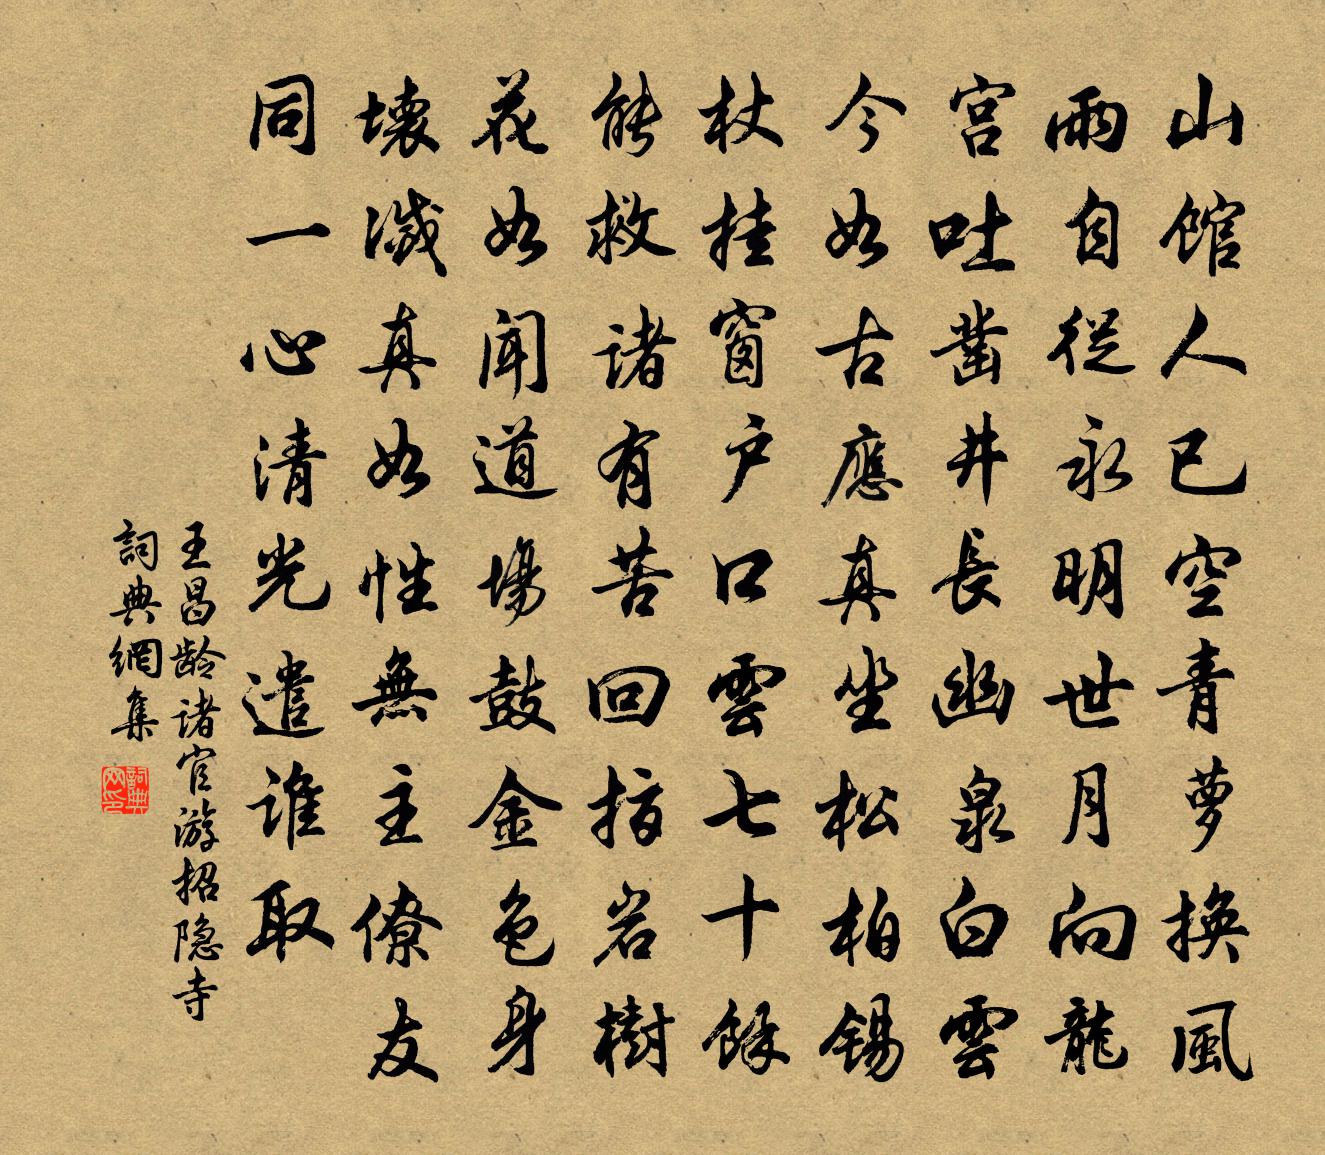 山館人已空青萝換風
雨自從永明世月向龍
宫吐凿井長幽泉白雲
今如古應真坐松柏錫
杖挂窗户口雲七十餘
能救诸有苦回指岩樹
花如闻道場鼓金色身
壞滅真如性無主僚友
同一心清光遣誰取
王昌龄诸官游招隐寺
詞典網集
詞典
网印